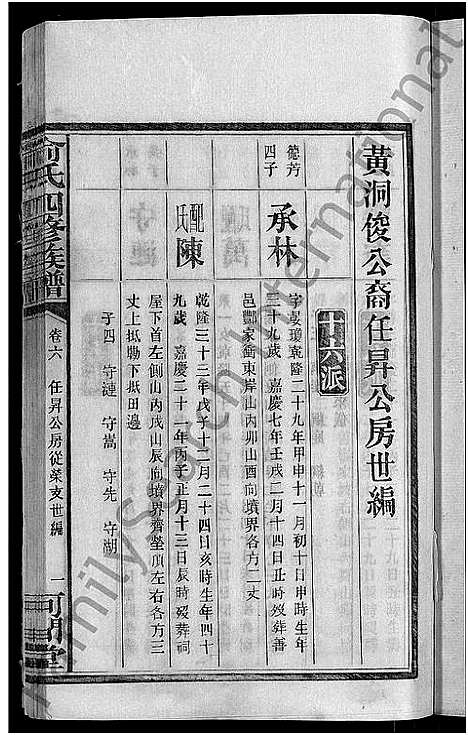 黃洞俊公裔任昇公房世編
十六派
德芳
四子
承林
字晏瓊乾隆二十九年甲申十一月初十日申時生年
三十九歲 嘉慶七年壬戌二月十四日丑時歿葬善
邑酆家衝東岸山內卯山酉向墳界各方二丈
配陳
氏
乾隆三十三年戊子十二月二十四日亥時生年四十
九歲 嘉慶二十一年丙子正月十三日辰時歿葬祠
屋下首左側山內戌山辰向墳界齊塋頂左右各方三
丈上抵塝下抵田邊
子四 守漣 守嵩 守先 守湖
俞氏四修族譜
卷六 任昇公房從榮支世編
一
可閒堂
FamilySearch International